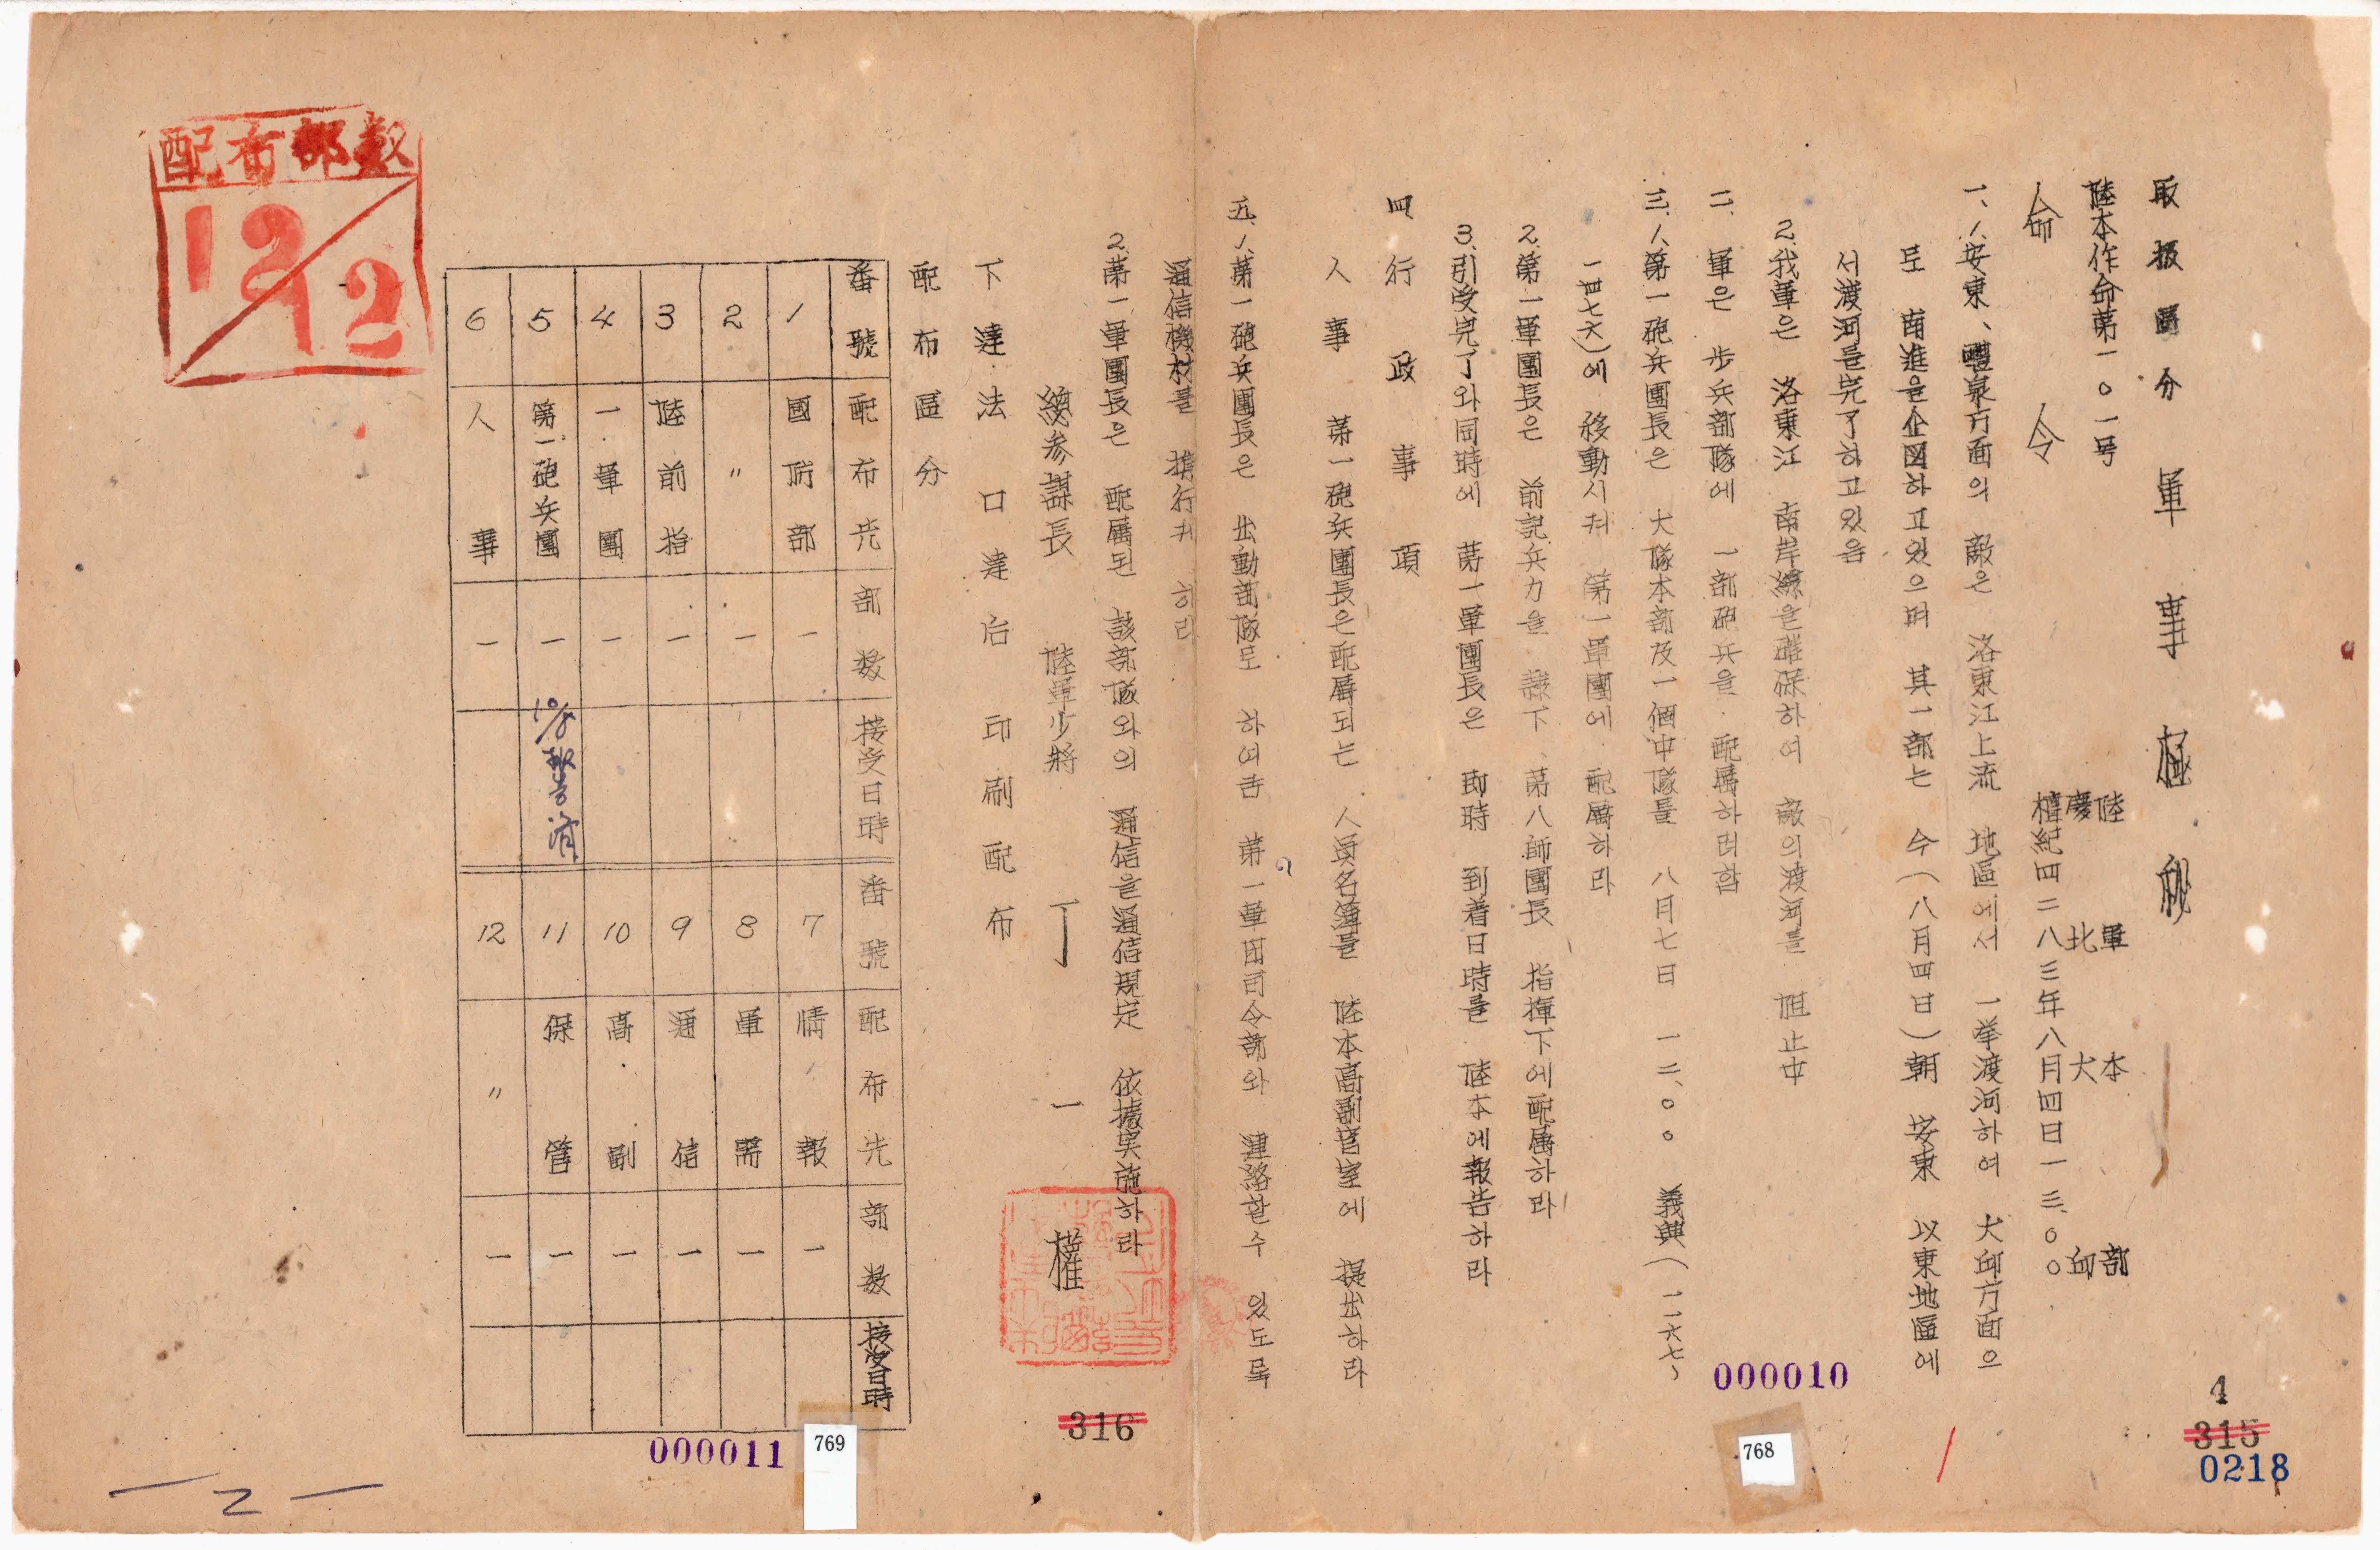 取扱區分 軍事極秘
陸本作命第一〇一号
陸軍本部
慶北大邱
檀紀四二八三年八月四日一三.〇〇
命令
一、1.安東、醴泉方面의 敵은 洛東江上流 地區에서 一挙渡河하여 大邱方面으
로 南進을企図하고있으며 其一部는 今(八月四日)朝 安東 以東地區에
서渡河를完了하고있음
2.我軍은 洛東江 南岸線을確保하여 敵의渡河를 阻止中
二. 軍은 步兵部隊에 一部砲兵을 配属하려함
三.1.第一砲兵團長은 大隊本部及一個中隊를 八月七日 一二.〇〇 義興(一一六七~
一四七六)에 移動시켜 第一軍團에 配属하라
2.第一軍團長은 前記兵力을 隷下、第八師團長 指揮下에配属하라
3.引受完了와同時에 第一軍團長은 即時 到着日時를 陸本에報告하라
四 行政事項
人事 第一砲兵團長은配属되는 人員名簿를 陸本高副官室에 提出하라
五.1.第一砲兵團長은 出動部隊로 하여금 第一軍団司令部와 連絡할수 있도록
通信機材를 携行케 하라
2.第一軍團長은 配属된 該部隊와의 通信을通信規定 依據実施하라
總参謀長 陸軍少將 丁一權
下達法 口達后印刷配布
配布區分
番號 配布先 部数 接受日時 番號 配布先 部数 接受日時
1 國防部 一 7 情報 一
2 〃 一 8 軍需 一
3 陸前指 一 9 通信 一
4 一軍團 一 10 高副 一
5 第一砲兵團 一 10/8 報告済 11 保管 一
6 人事 一 12 〃 一
配布部数
12
2
000010
000011
768
769
4
315
316
0218
—2—